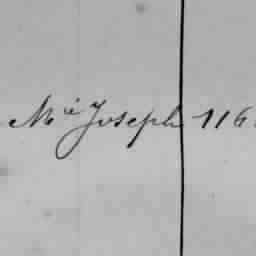 Mie Joseph 116